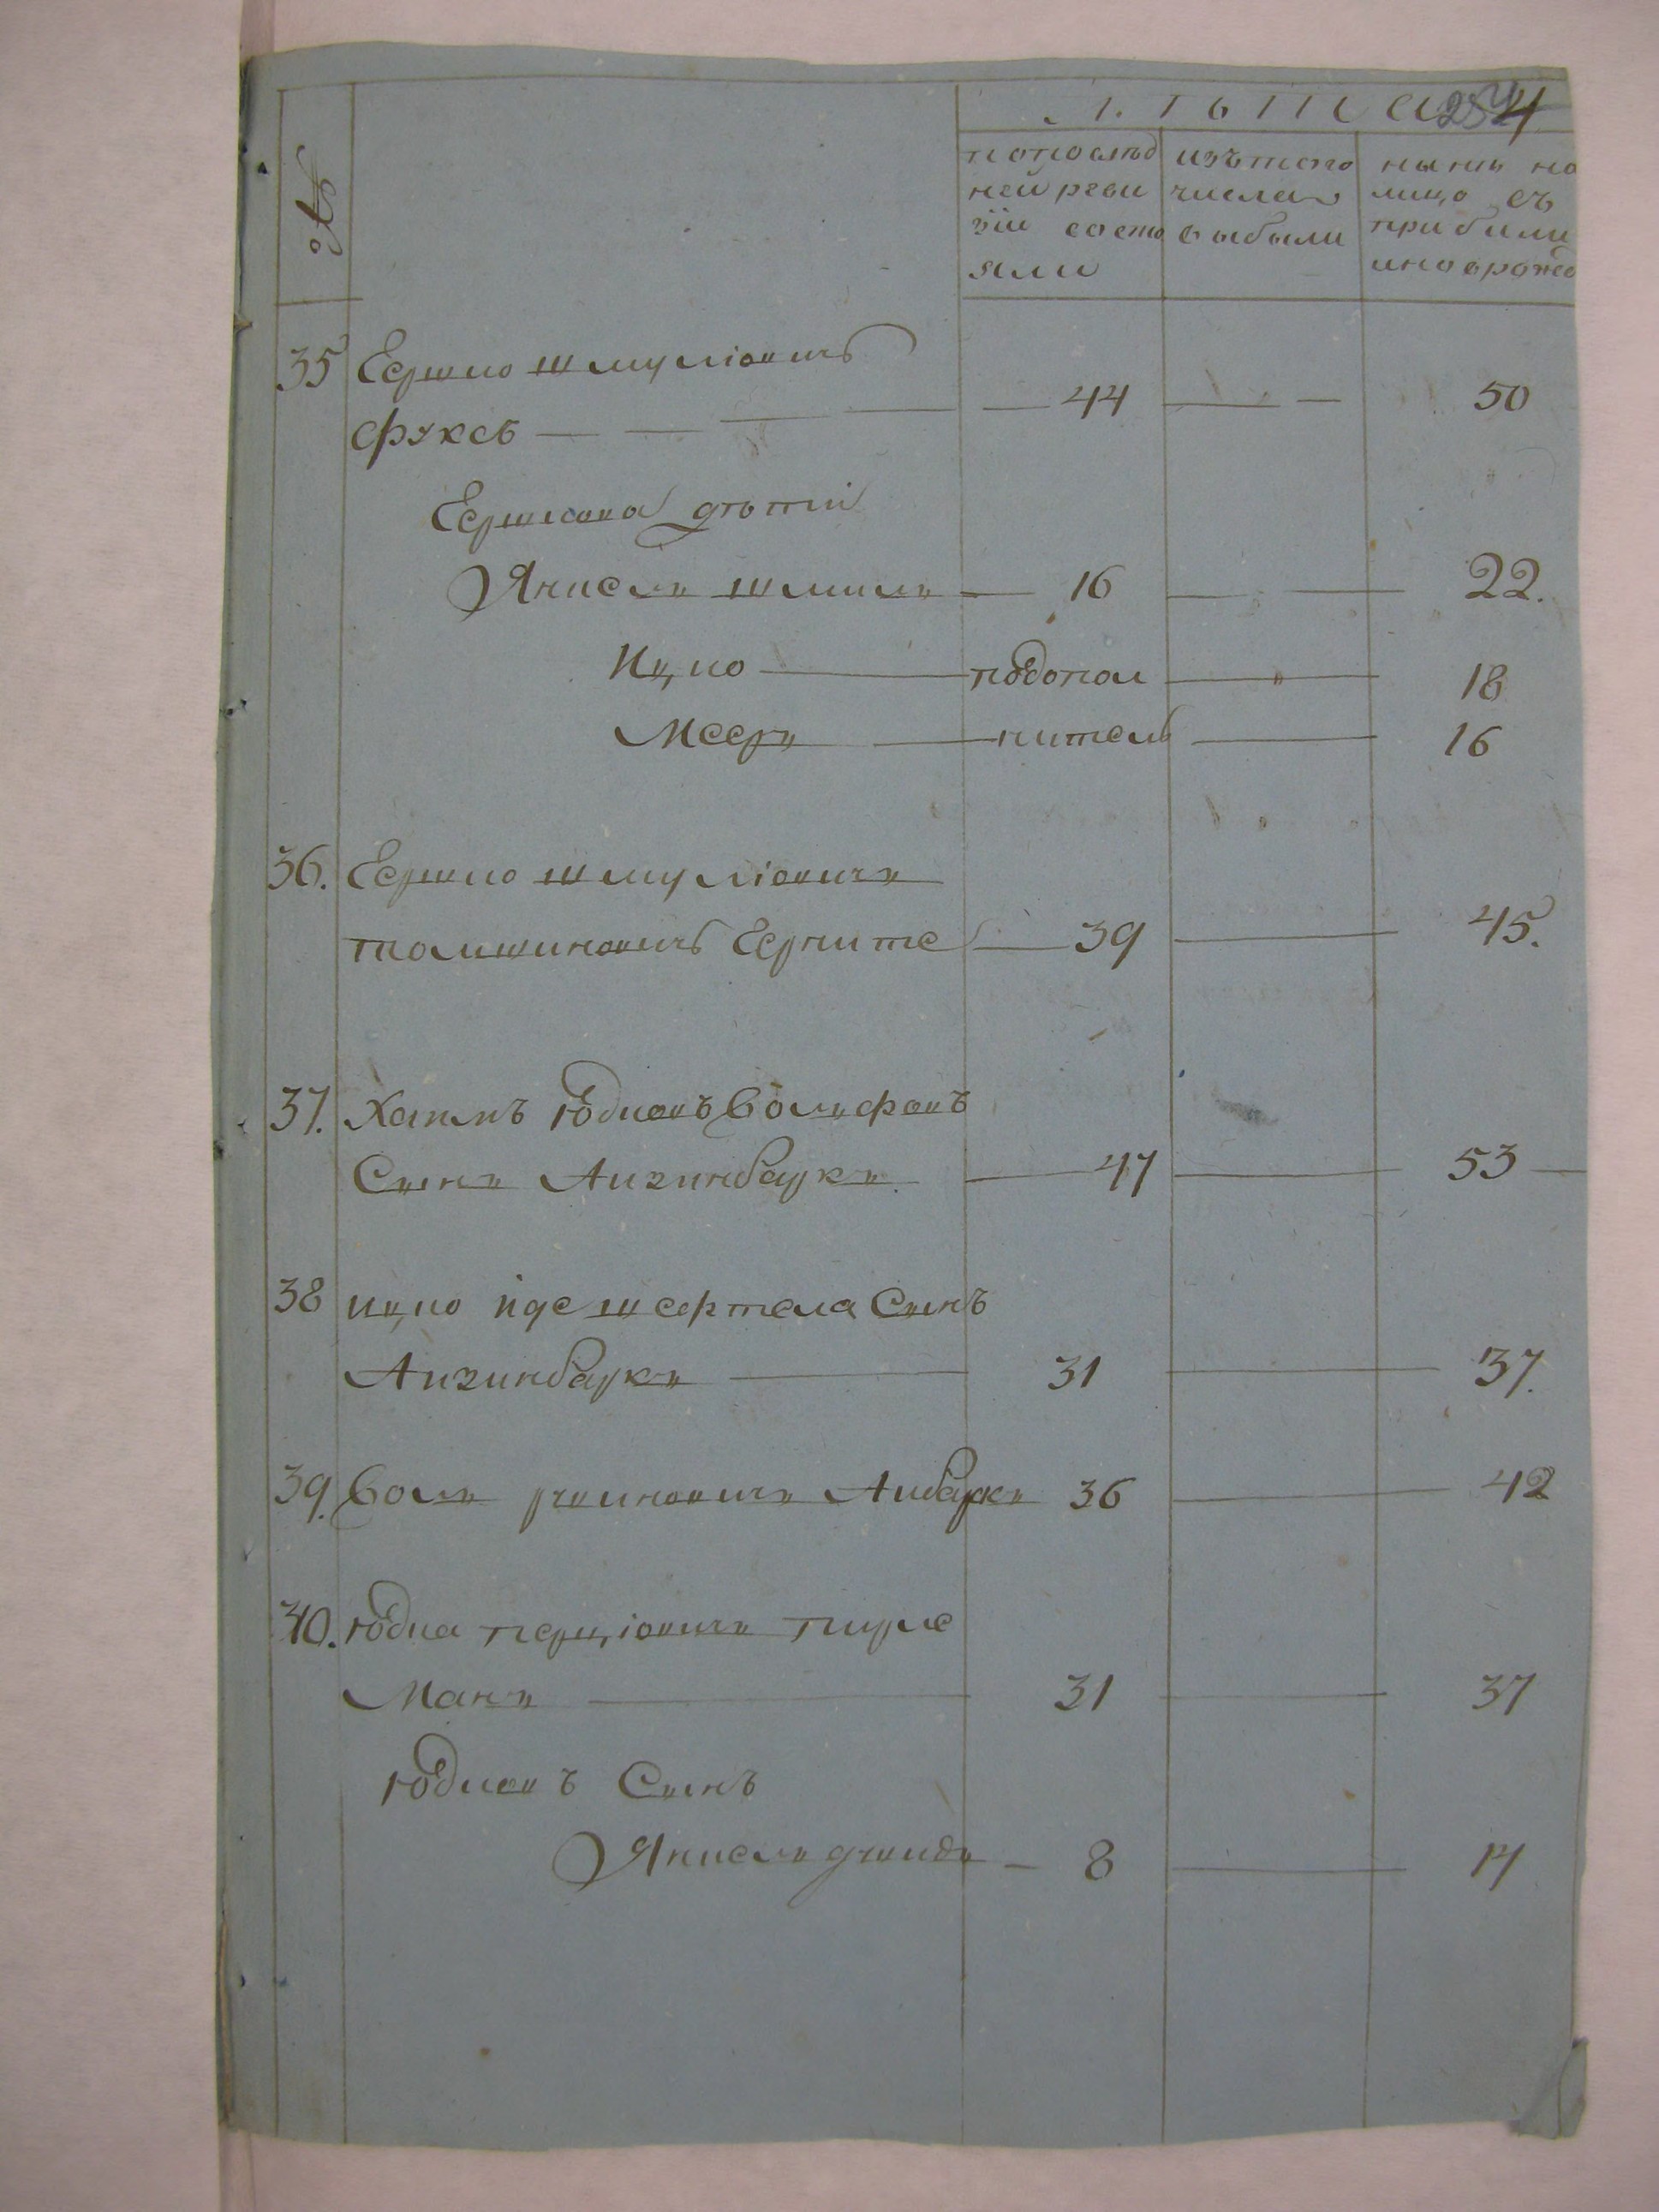 Лѣта 254
№
по послѣд
ней реви
зіи состо
яли
изъ того
числа
выбыли
нынѣ на
лицо съ
прибыли
и новорожд
35 Гершко Шмуліовичъ
Фуксъ — 44 — 50
Гершкова дѣтий
Янкель Шмиль — 16 — 22.
Ицко — подопол — 18
Мееръ — нитель — 16
36. Гершко Шмуліовичъ
Гершите — 39 — 45.
37. Хаимъ Юдковъ Вольфовъ
Сынъ Айзинбаркъ — 47 — 53
38 Ицко Сынъ
Айзинбаркъ — 31 — 37.
39. Воль Айбаркъ 36 — 42
40. Юдка Перціовичъ
Манъ — 31 — 37
Юдковъ Сынъ
Янкель Давидъ — 8 — 14